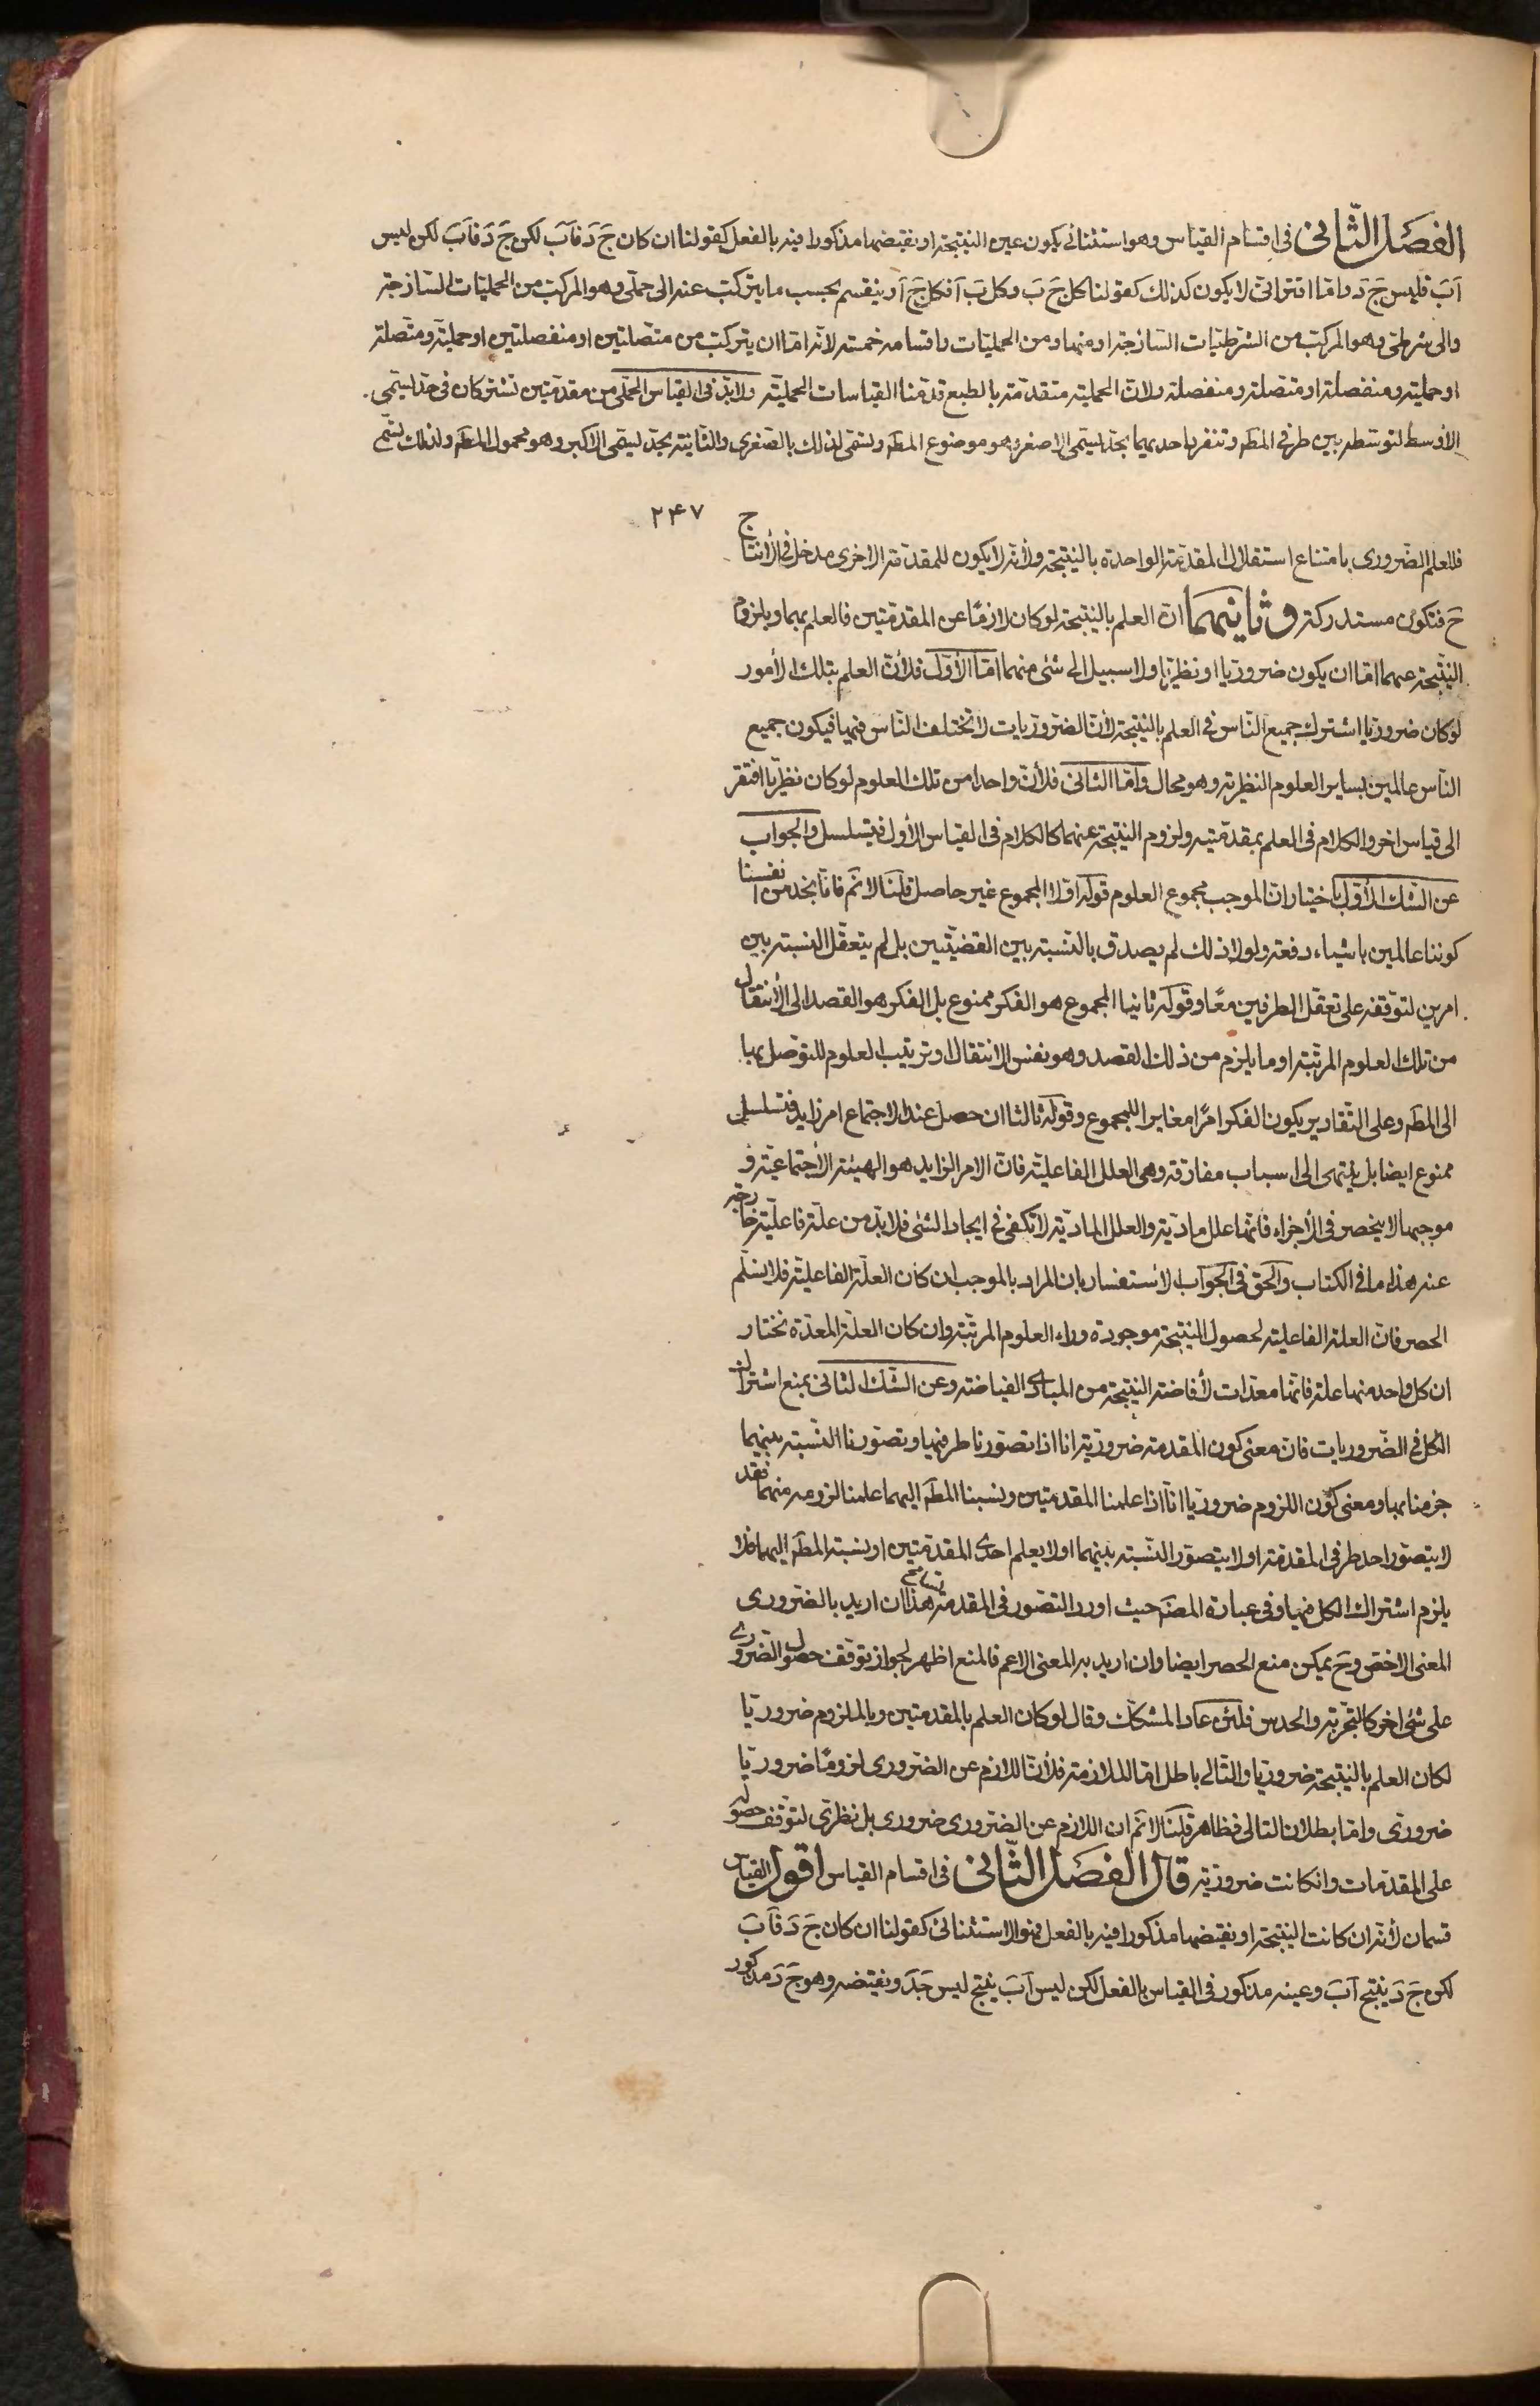 الفصل الثانى فى اقسام القياس وهو استثنائى يكون عين النتيجة او نقيضها مذكورا فيه بالفعل كقولنا ان كان جَ دَ فآبَ لكن جَ دَ فآبَ لكن ليس
آبَ فليس جَ دَ واما اقترانى لا يكون كذلك كقولنا كل جَ بَ وكل بَ آ فكل جَ آ وينقسم بحسب ما يتركب عنه الى حملى وهو المركب من الحمليات الساذجة
والى شرطى وهو المركب من الشرطيات الساذجة او منها ومن الحمليات واقسامه خمسة لانه اما ان يتركب من متصلتين او منفصلتين او حملية ومتصلة
او حملية ومنفصلة او متصلة ومنفصلة ولان الحملية متقدمة بالطبع قدمنا القياسات الحملية ولابد فى القياس الحملى من مقدمتين تشتركان فى حد يسمى
الاوسط لتوسطه بين طرفى المط وتنفرد احديهما بحد يسمى الاصغر وهو موضوع المط وتسمى لذلك بالصغرى والثانية بحد يسمى الاكبر وهو محمول المط ولذلك تسمى
٢٤٧
فللعلم الضرورى بامتناع استقلال المقدمة الواحدة بالنتيجة ولانه لا يكون للمقدمة الاخرى مدخل فى الأنتاج
حَ فتكون مستدركة وثانيهما ان العلم بالنتيجة لو كان لازمًا عن المقدمتين فالعلم بهما وبلزوم
النتيجة عنهما اما ان يكون ضروريا او نظريا ولا سبيل الى شئ منهما اما الأول فلأن العلم بتلك الأمور
لو كان ضروريا اشترك جميع الناس فى العلم بالنتيجة لأن الضروريات لا تختلف الناس فيها فيكون جميع
الناس عالمين بساير العلوم النظرية وهو محال واما الثانى فلأن واحدا من تلك العلوم لو كان نظريا افتقر
الى قياس اخر والكلام فى العلم بمقدمتيه ولزوم النتيجة عنهما كالكلام فى القياس الأول فيتسلسل والجواب
عن الشك الأول باختيار ان الموجب مجموع العلوم قوله اولا المجموع غير حاصل قلنا لا نم فانا نجد من انفسنا
كوننا عالمين باشياء دفعة ولولا ذلك لم يصدق بالنسبة بين القضيتين بل لم يتعقل النسبة بين
امرين لتوقفه على تعقل الطرفين معًا وقوله ثانيا المجموع هو الفكر ممنوع بل الفكر هو القصد الى الأنتقال
من تلك العلوم المرتبة او ما يلزم من ذلك القصد وهو نفس الانتقال او ترتيب العلوم للتوصل بها
الى المط وعلى التقادير يكون الفكر امرًا مغايرا للمجموع وقوله ثالثا ان حصل عند الاجتماع امر زايد فتسلسل
ممنوع ايضا بل ينتهى الى اسباب مفارقة وهى العلل الفاعلية فان الامر الزايد هو الهيئة الأجتماعية و
موجبها لا ينحصر فى الأجزاء فانها علل مادية والعلل المادية لا تكفى فى ايجاد الشئ فلابد من علة فاعلية خارجة
عنه هذا ما فى الكتاب والحق فى الجواب الاستفسار بان المراد بالموجب ان كان العلة الفاعلية فلا نسلم
الحصر فان العلة الفاعلية لحصول النتيجة موجودة وراء العلوم المرتبة وان كان العلة المعدة نختار
ان كل واحد منها علة فانها معدات لأفاضة النتيجة من المبادى الفياضة وعن الشك الثانى بمنع اشتراك
الكل فى الضروريات فان معنى كون المقدمة ضرورية انا اذا تصورنا طرفيها وتصورنا النسبة بينهما
جزمنا بها ومعنى كون اللزوم ضروريا انا اذا علمنا المقدمتين ونسبنا المط اليهما علمنا لزومه منهما فقد
لا يتصور احد طرفى المقدمة او لا يتصور النسبة بينهما او لا يعلم احدى المقدمتين او نسبة المط اليهما فلا
يلزم اشتراك الكل فيها وفى عبارة المصَ حيث اورد التصور فى المقدمة تسامح هذا ان اريد بالضرورى
المعنى الاخص وحَ يمكن منع الحصر ايضا وان اريد به المعنى الاعم فالمنع اظهر لجواز توقف حصول الضرورى
على شئ اخر كالتجربة والحدس فلئن عاد المشكك وقال لو كان العلم بالمقدمتين وبالملزوم ضروريا
لكان العلم بالنتيجة ضروريا والتالى باطل اما الملازمة فلأن اللازم عن الضرورى لزومًا ضروريا
ضرورى واما بطلان التالى فظاهر قلنا لا نم ان اللازم عن الضرورى ضرورى بل نظرى لتوقف حصوله
على المقدمات وانكانت ضرورية قال الفصل الثانى فى اقسام القياس اقول القياس
قسمان لأنه ان كانت النتيجة او نقيضها مذكورا فيه بالفعل فهو الاستثنائى كقولنا ان كان جَ دَ فآبَ
لكن جَ دَ ينتج آبَ وعينه مذكور فى القياس بالفعل لكن ليس آبَ ينتج ليس جَدَ ونقيضه وهو جَ دَ مذكور